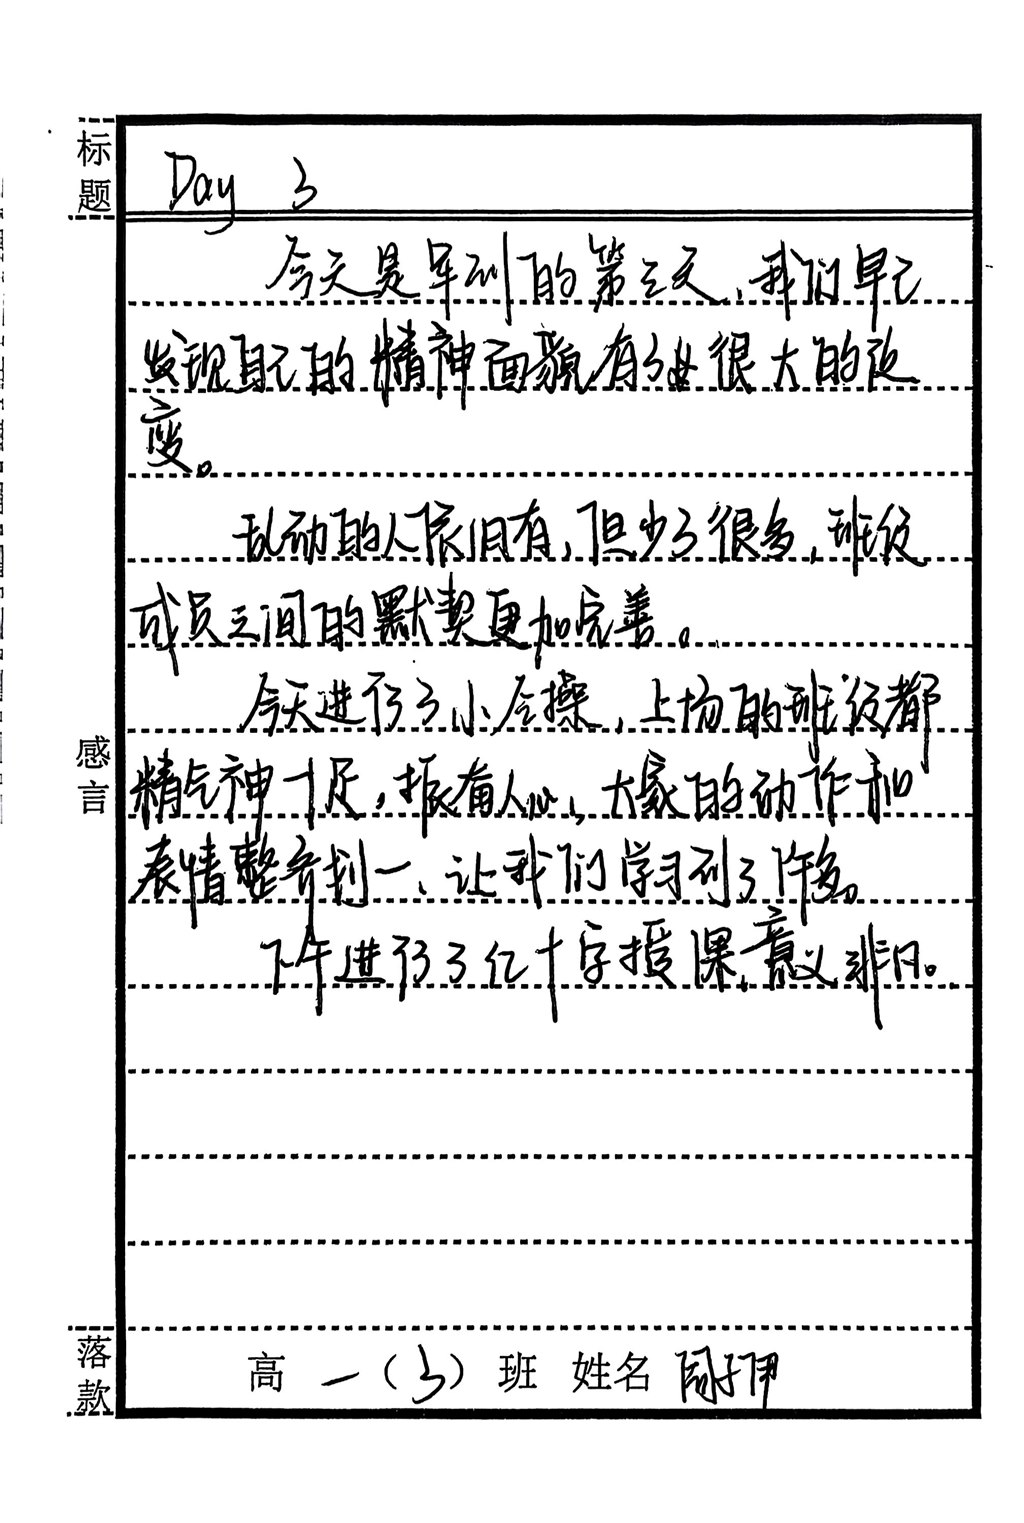 标题
Day 3
今天是军训的第三天，我们早已
发现自己的精神面貌有了些很大的改
变。
乱动的人依旧有，但少了很多，班级
成员之间的默契更加完善。
今天进行了小会操，上场的班级都
精气神十足，振奋人心，大家的动作和
表情整齐划一，让我们学习到了许多。
下午进行了红十字授课，意义非凡。
感言
落款
高一（3）班 姓名